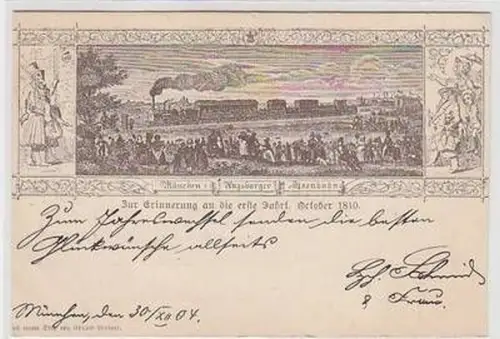 München - Augsburger Eisenbahn
Zur Erinnerung an die erste Fahrt. October 1840.
Zum Jahreswechsel senden die besten
Glückwünsche allseits
Hch. Schmid
& Frau.
München, den 30/XII 04.